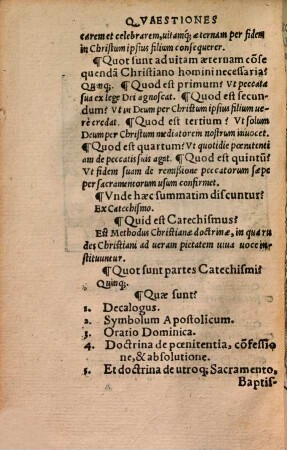 QVAESTIONES
carem et celebrarem, uitamq́; æternam per fidem
in Christum ipsius filium consequerer.
¶Quot sunt ad uitam æternam cõse
quendã Christiano homini necessaria?
Quinq;. ¶Quod est primum? Vt peccata
sua ex lege Dei agnoscat. ¶Quod est secun
dum? Vt in Deum per Christum ipsius filium ue-
re credat. ¶Quod est tertium? Vt solum
Deum per Christum mediatorem nostrum inuocet.
¶Quod est quartum? Vt quotidie pœnitenti
am de peccatis suis agat. ¶Quod est quintũ?
Vt fidem suam de remissione peccatorum sæpe
per Sacramentorum usum confirmet.
¶Vnde hæc summatim discuntur?
Ex Catechismo.
¶Quid est Catechismus?
Est Methodus Christianæ doctrinæ, in qua ru
des Christiani ad ueram pietatem uiua uoce in-
stituuntur.
¶Quot sunt partes Catechismi?
Quinq;.
¶Quæ sunt?
1. Decalogus.
2. Symbolum Apostolicum.
3. Oratio Dominica.
4. Doctrina de pœnitentia, cõfessio
ne, & absolutione.
5. Et doctrina de utroq; Sacramento,
Baptis-